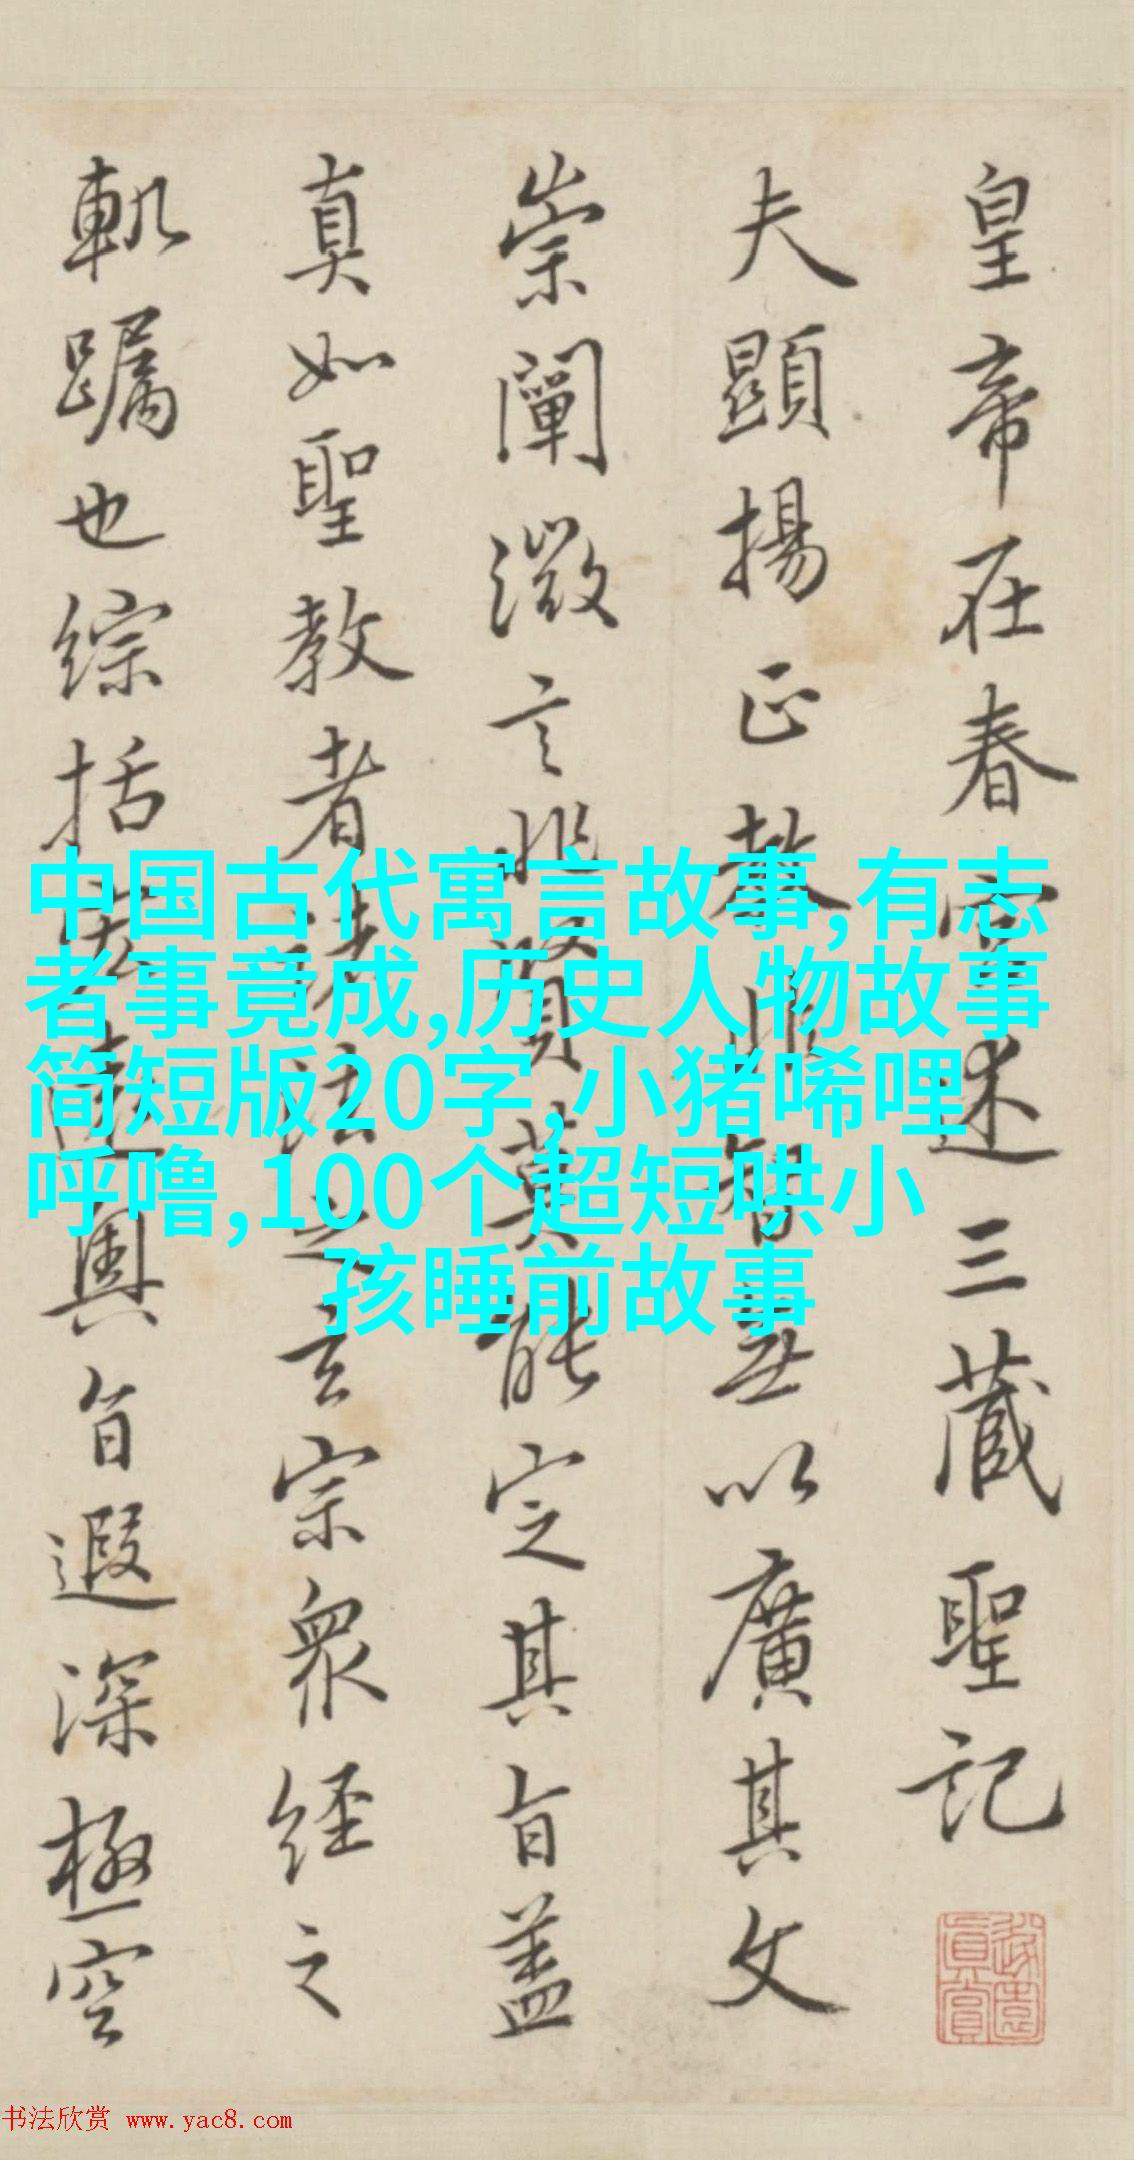 皇帝在春宮述三藏聖記
夫顯揚正教非智無以廣其文
崇闡微言非賢莫能定其旨蓋
真如聖教者諸法之玄宗眾經之
軌躅也綜括宏遠奧旨遐深極空
中国古代寓言故事,有志
者事竟成,历史人物故事
简短版20字,小猪唏哩
呼噜,100个超短哄小
孩睡前故事
书法欣赏 www.yac8.com